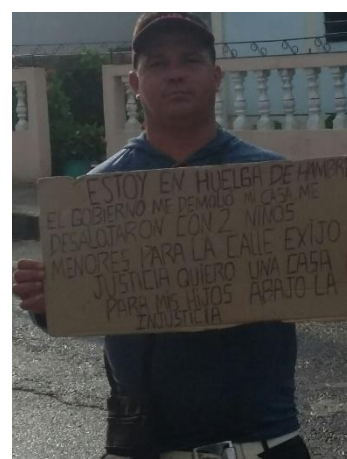 ESTOY EN HUELGA DE HAMBRE
EL GOBIERNO ME DEMOLIO MI CASA ME
DESALOJARON CON 2 NIÑOS
MENORES PARA LA CALLE EXIJO
JUSTICIA QUIERO UNA CASA
PARA MIS HIJOS ABAJO LA
INJUSTICIA